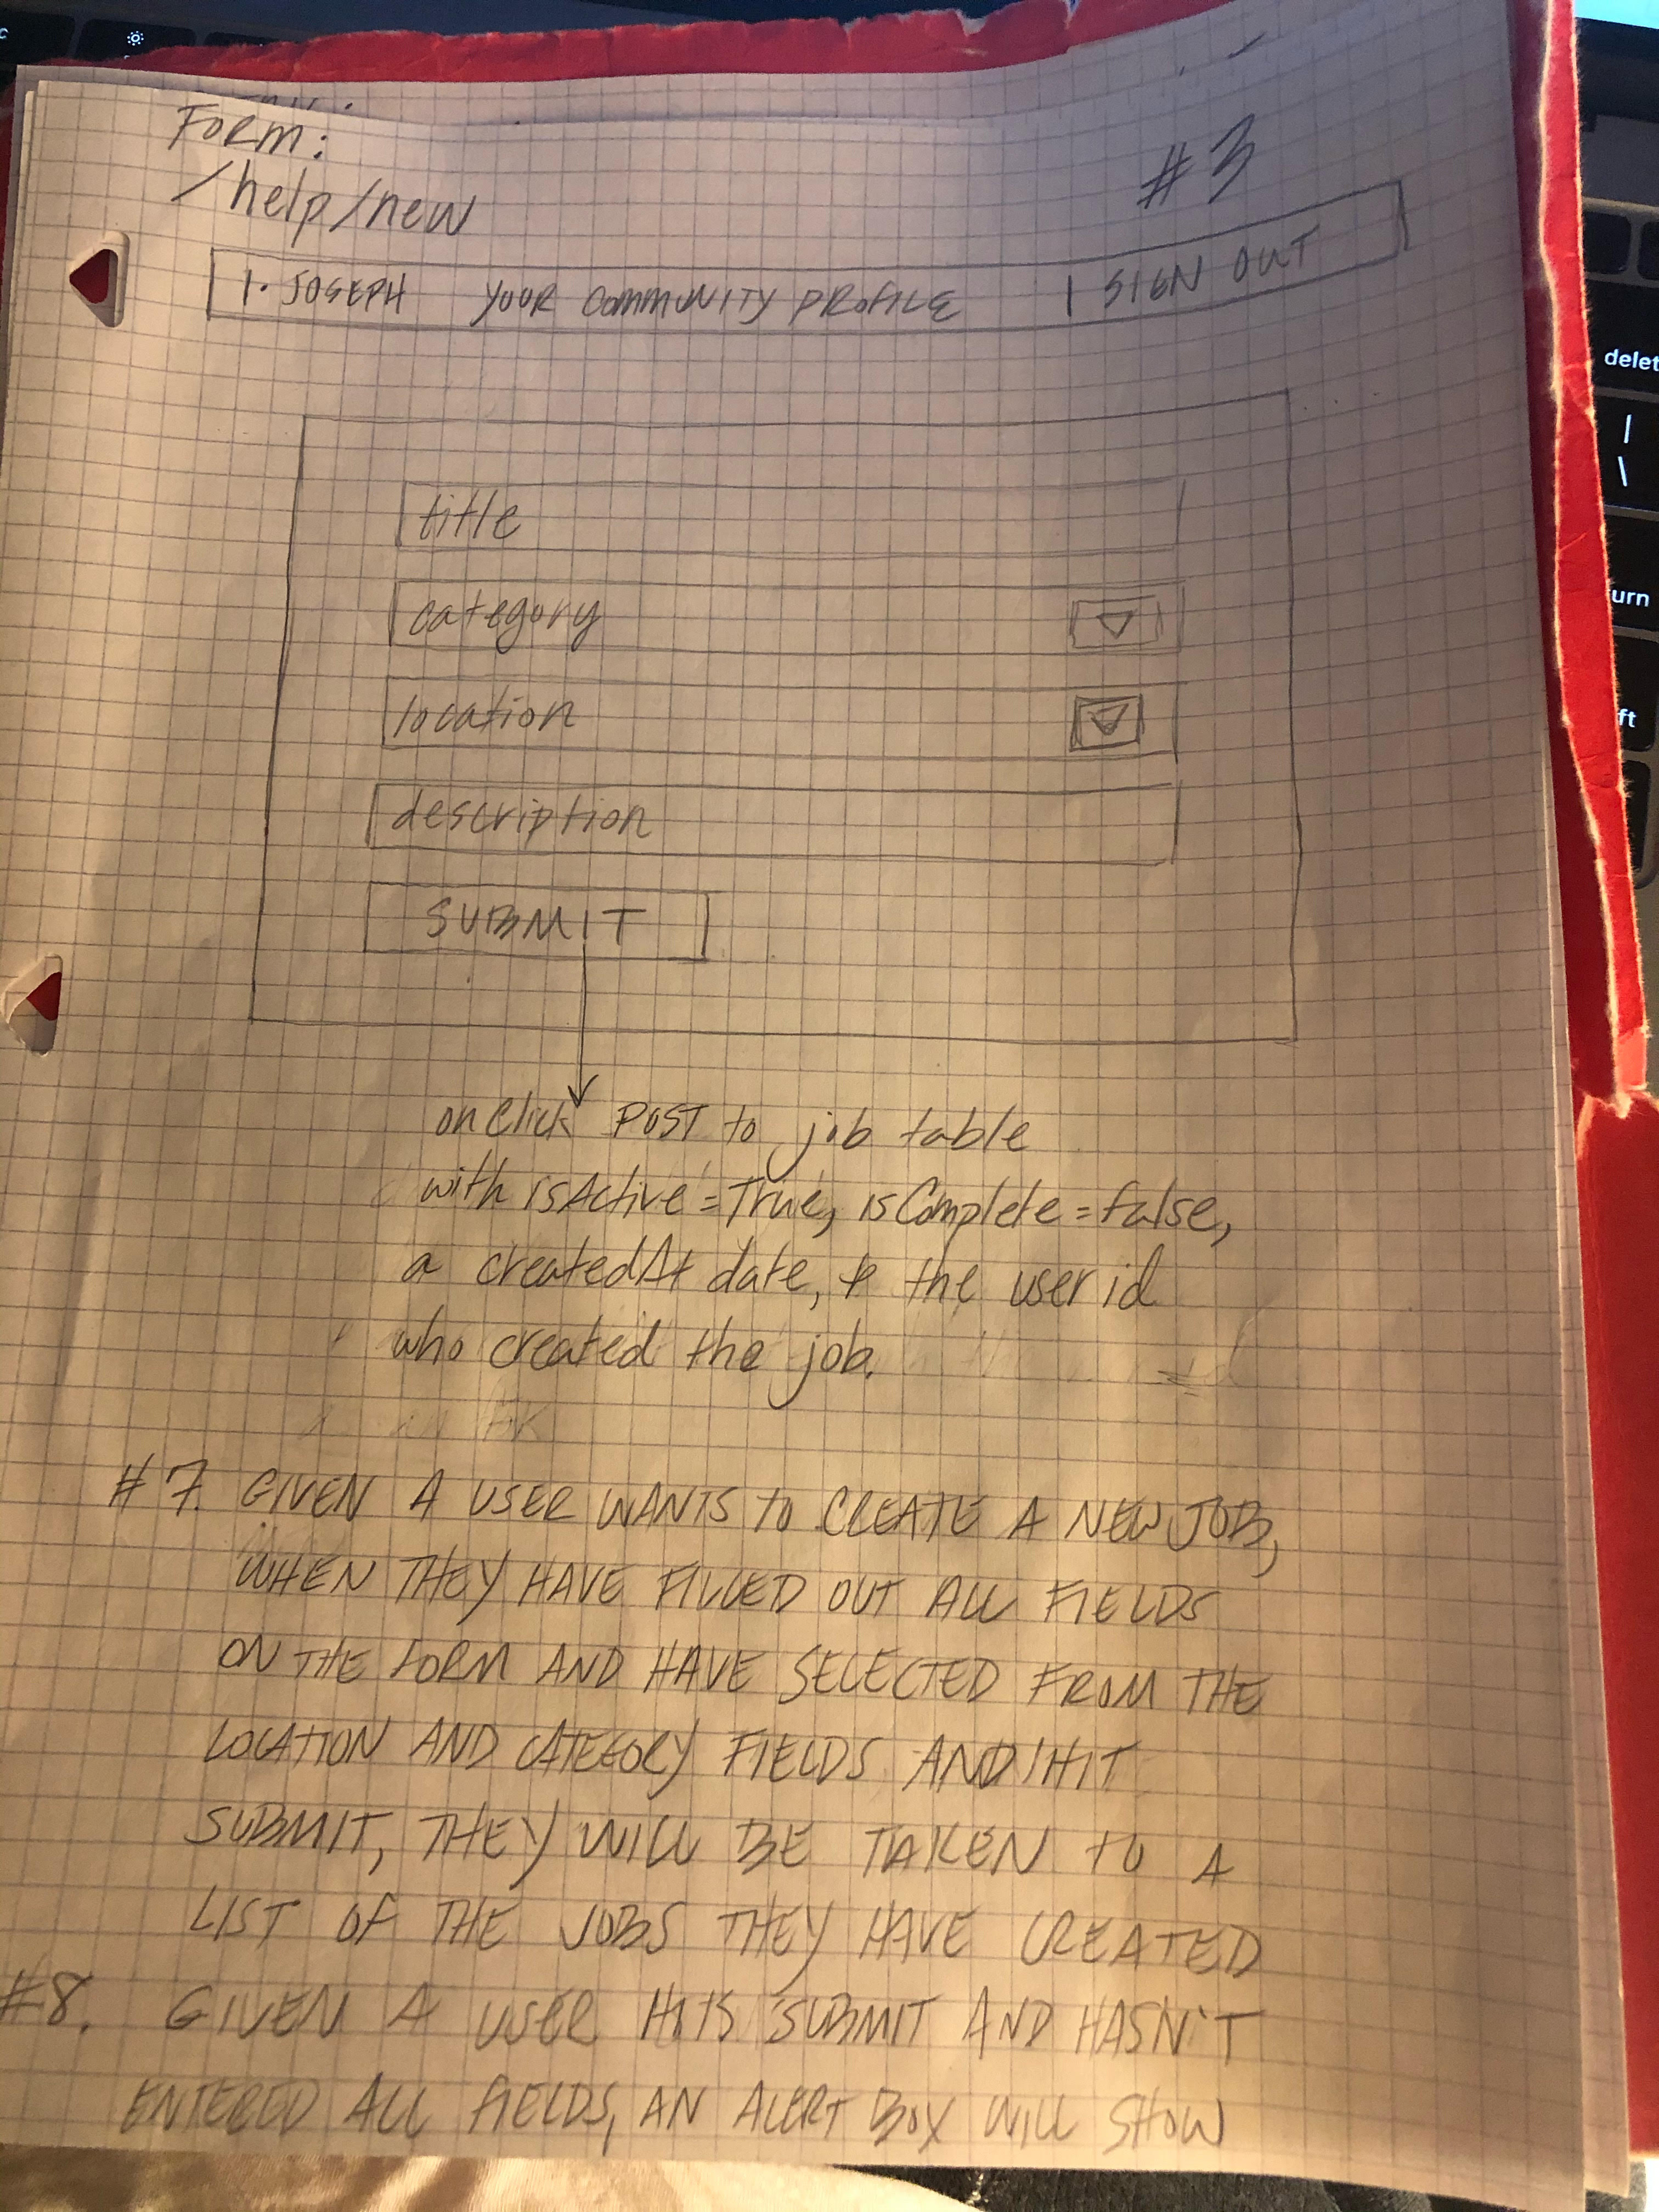 Form:
/help/new
#3
1. JOSEPH YOUR COMMUNITY PROFILE | SIGN OUT
title
category
location
description
SUBMIT
onClick POST to job table
with isActive = True, isComplete = false,
a createdAt date, & the user id
who created the job.
#7. GIVEN A USER WANTS TO CREATE A NEW JOB,
WHEN THEY HAVE FILLED OUT ALL FIELDS
ON THE FORM AND HAVE SELECTED FROM THE
LOCATION AND CATEGORY FIELDS AND HIT
SUBMIT, THEY WILL BE TAKEN TO A
LIST OF THE JOBS THEY HAVE CREATED
#8. GIVEN A USER HITS SUBMIT AND HASN'T
ENTERED ALL FIELDS, AN ALERT BOX WILL SHOW
delet
|
\
urn
ft